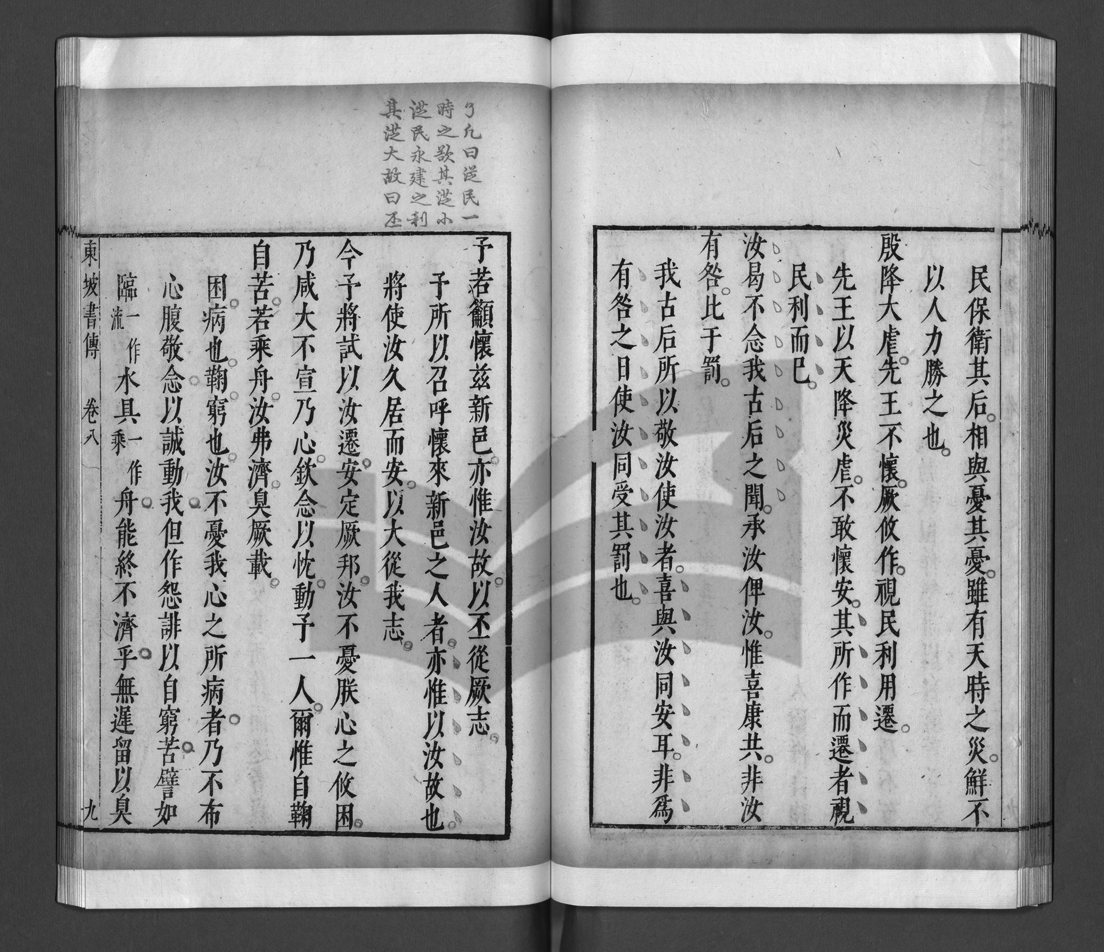 民保衛其后相與憂其憂雖有天時之災鮮不
以人力勝之也
殷降大虐先王不懷厥攸作視民利用遷
先王以天降災虐不敢懷安其所作而遷者視
民利而已
汝曷不念我古后之聞承汝俾汝惟喜康共非汝
有咎比于罰
我古后所以敬汝使汝者喜與汝同安耳非爲
有咎之日使汝同受其罰也
了凡曰從民一
時之欲其從小
從民永建之利
其從大故曰丕
予若籲懷茲新邑亦惟汝故以丕從厥志
予所以召呼懷來新邑之人者亦惟以汝故也
將使汝久居而安以大從我志
今予將試以汝遷安定厥邦汝不憂朕心之攸困
乃咸大不宣乃心欽念以忱動予一人爾惟自鞠
自苦若乘舟汝弗濟臭厥載
困病也鞠窮也汝不憂我心之所病者乃不布
心腹敬念以誠動我但作怨誹以自窮苦譬如
臨一作流水具一作乘舟能終不濟乎無遲留以臭
東坡書傳 卷八 九